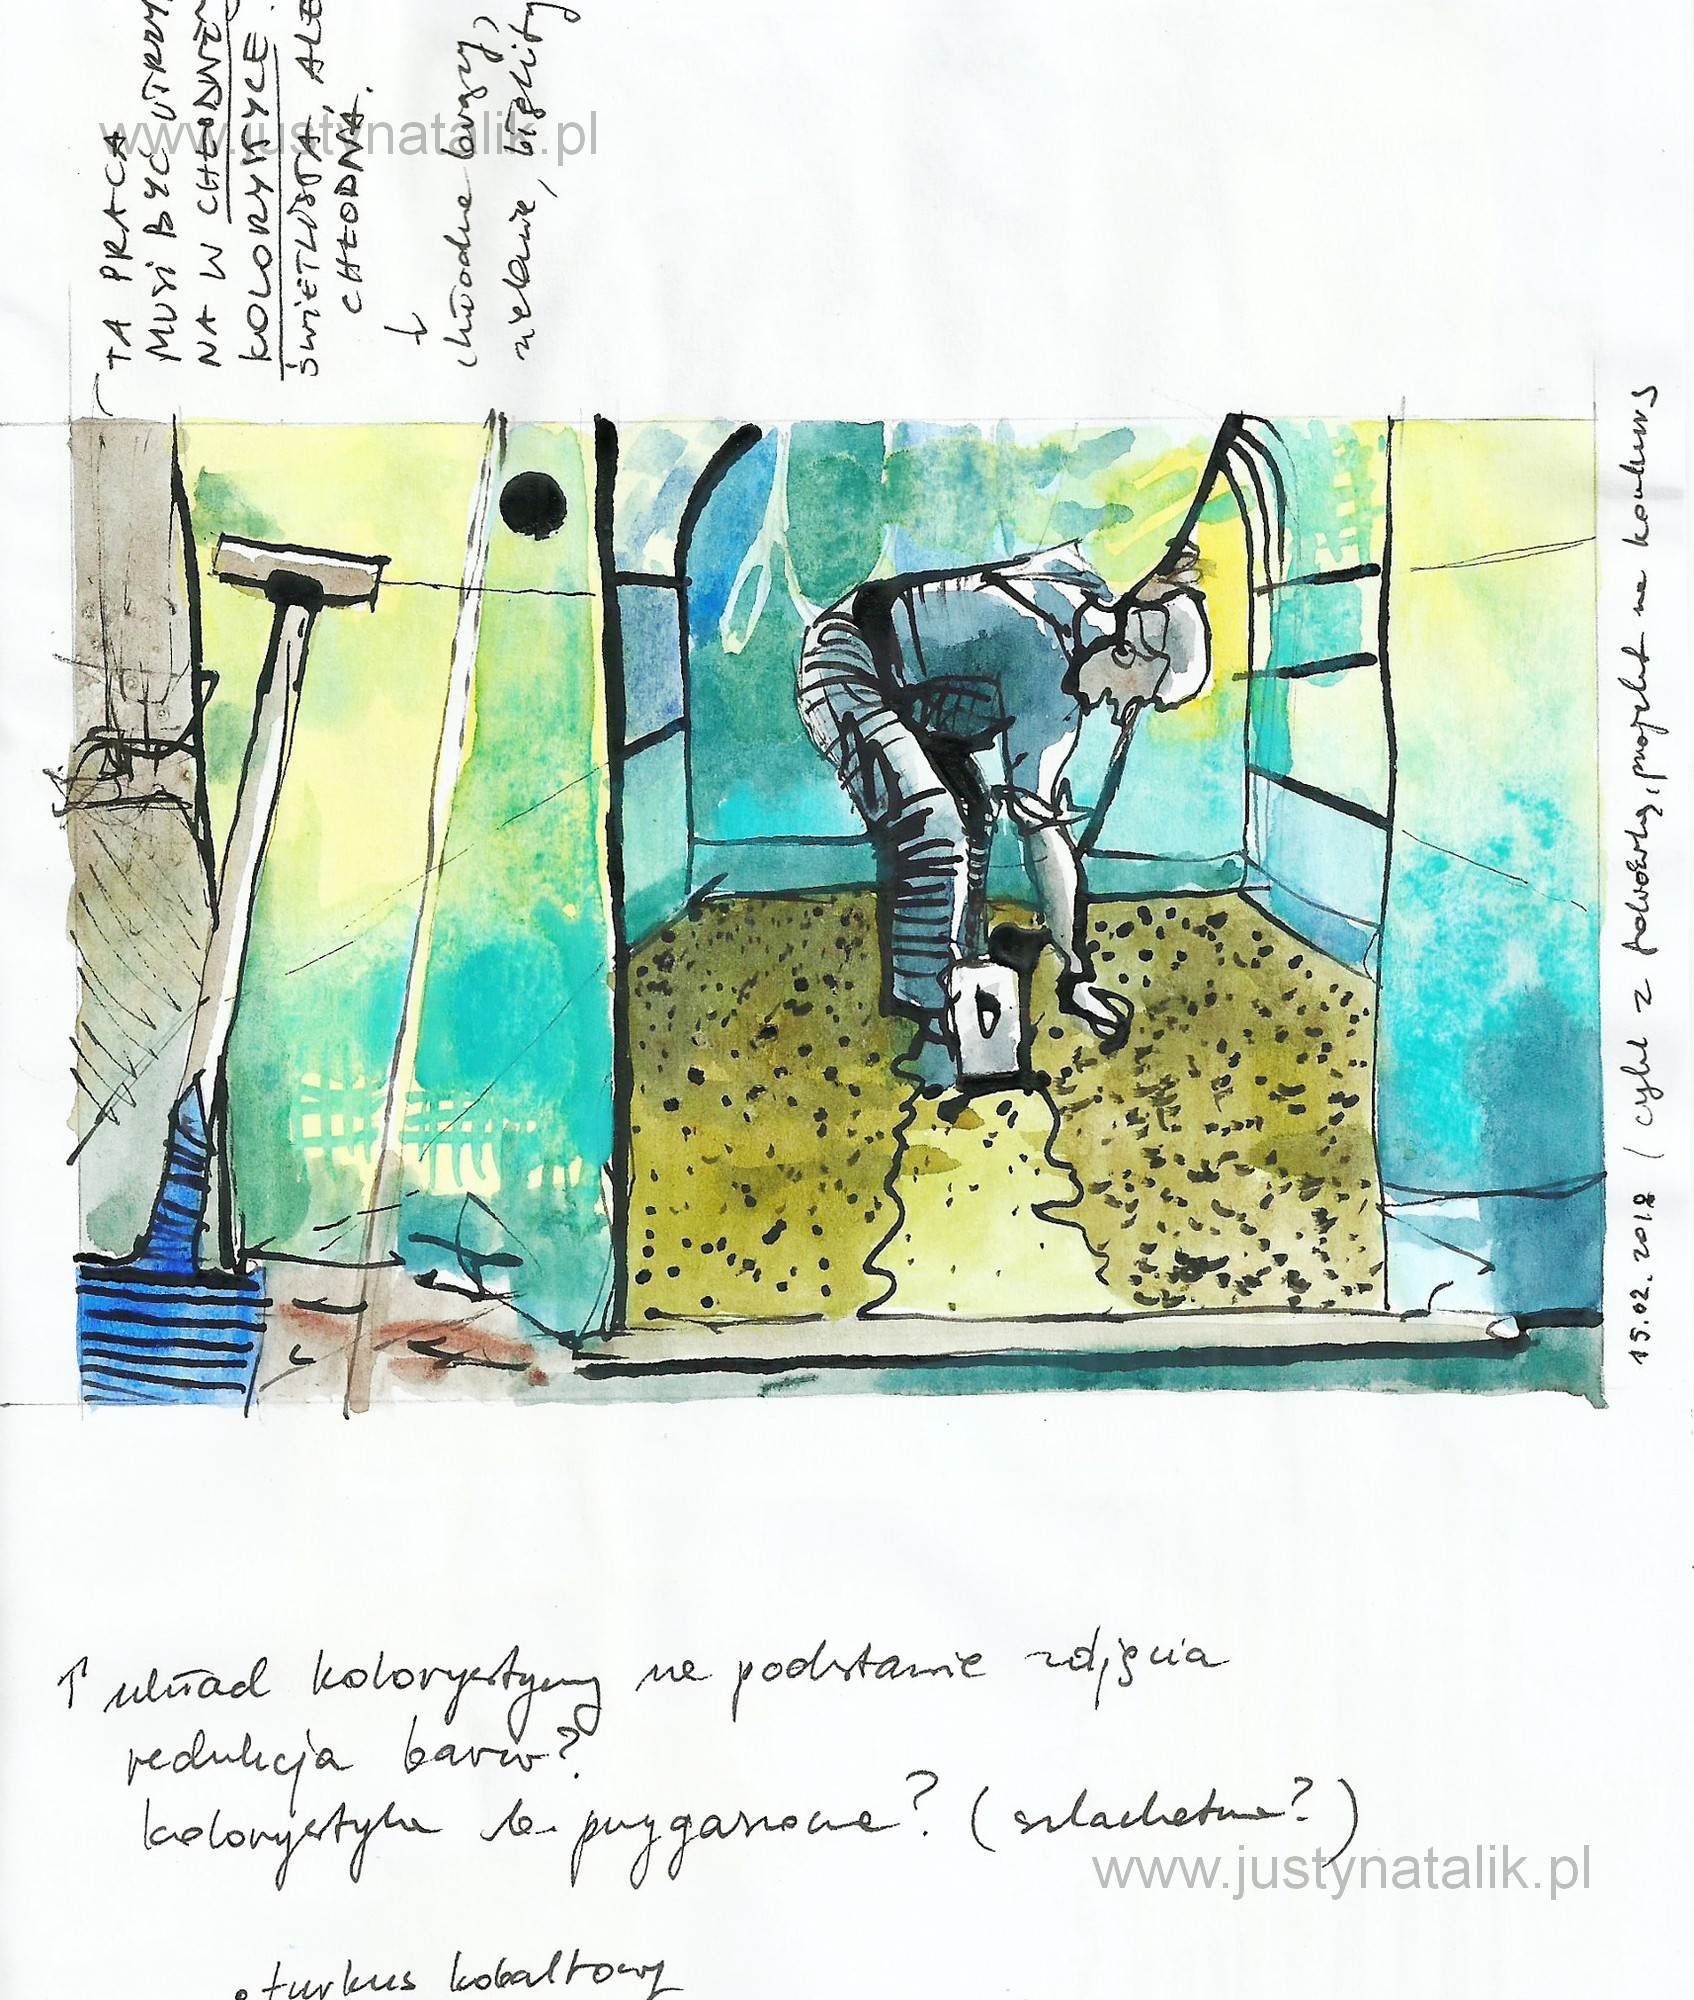 TA PRACA
MUSI BYĆ UTRZY
NA W CHŁODNEJ
KOLORYSTYCE.
ŚWIETLISTA, ALE
CHŁODNA.
↓
chłodne brązy,
zielenie, błękity
www.justynatalik.pl
15.02.2018 / cykl z podróży, projekt na konkurs
↑ układ kolorystyczny na podstawie zdjęcia
redukcja barw?
kolorystyka b. przygaszona? (szlachetna?)
www.justynatalik.pl
• turkus kobaltowy